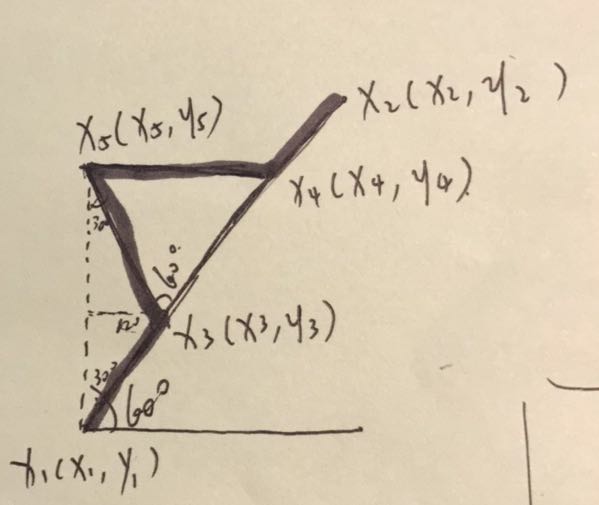 X2(X2, y2)
X5(X5, y5)
X4(X4, y4).
30°
60°
X3(X3, y3)
30°
60°
X1(X1, Y1)